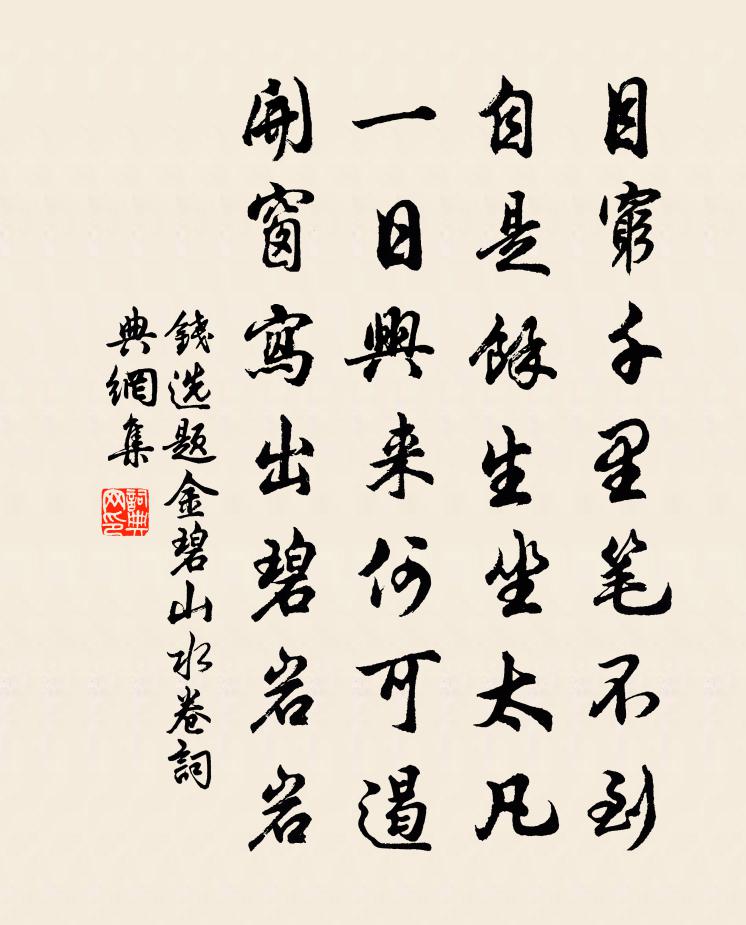 目窮千里笔不到
自是餘生坐太凡
一日興来何可遏
開窗寫出碧岩岩
錢选题金碧山水卷詞
典網集
詞典網印